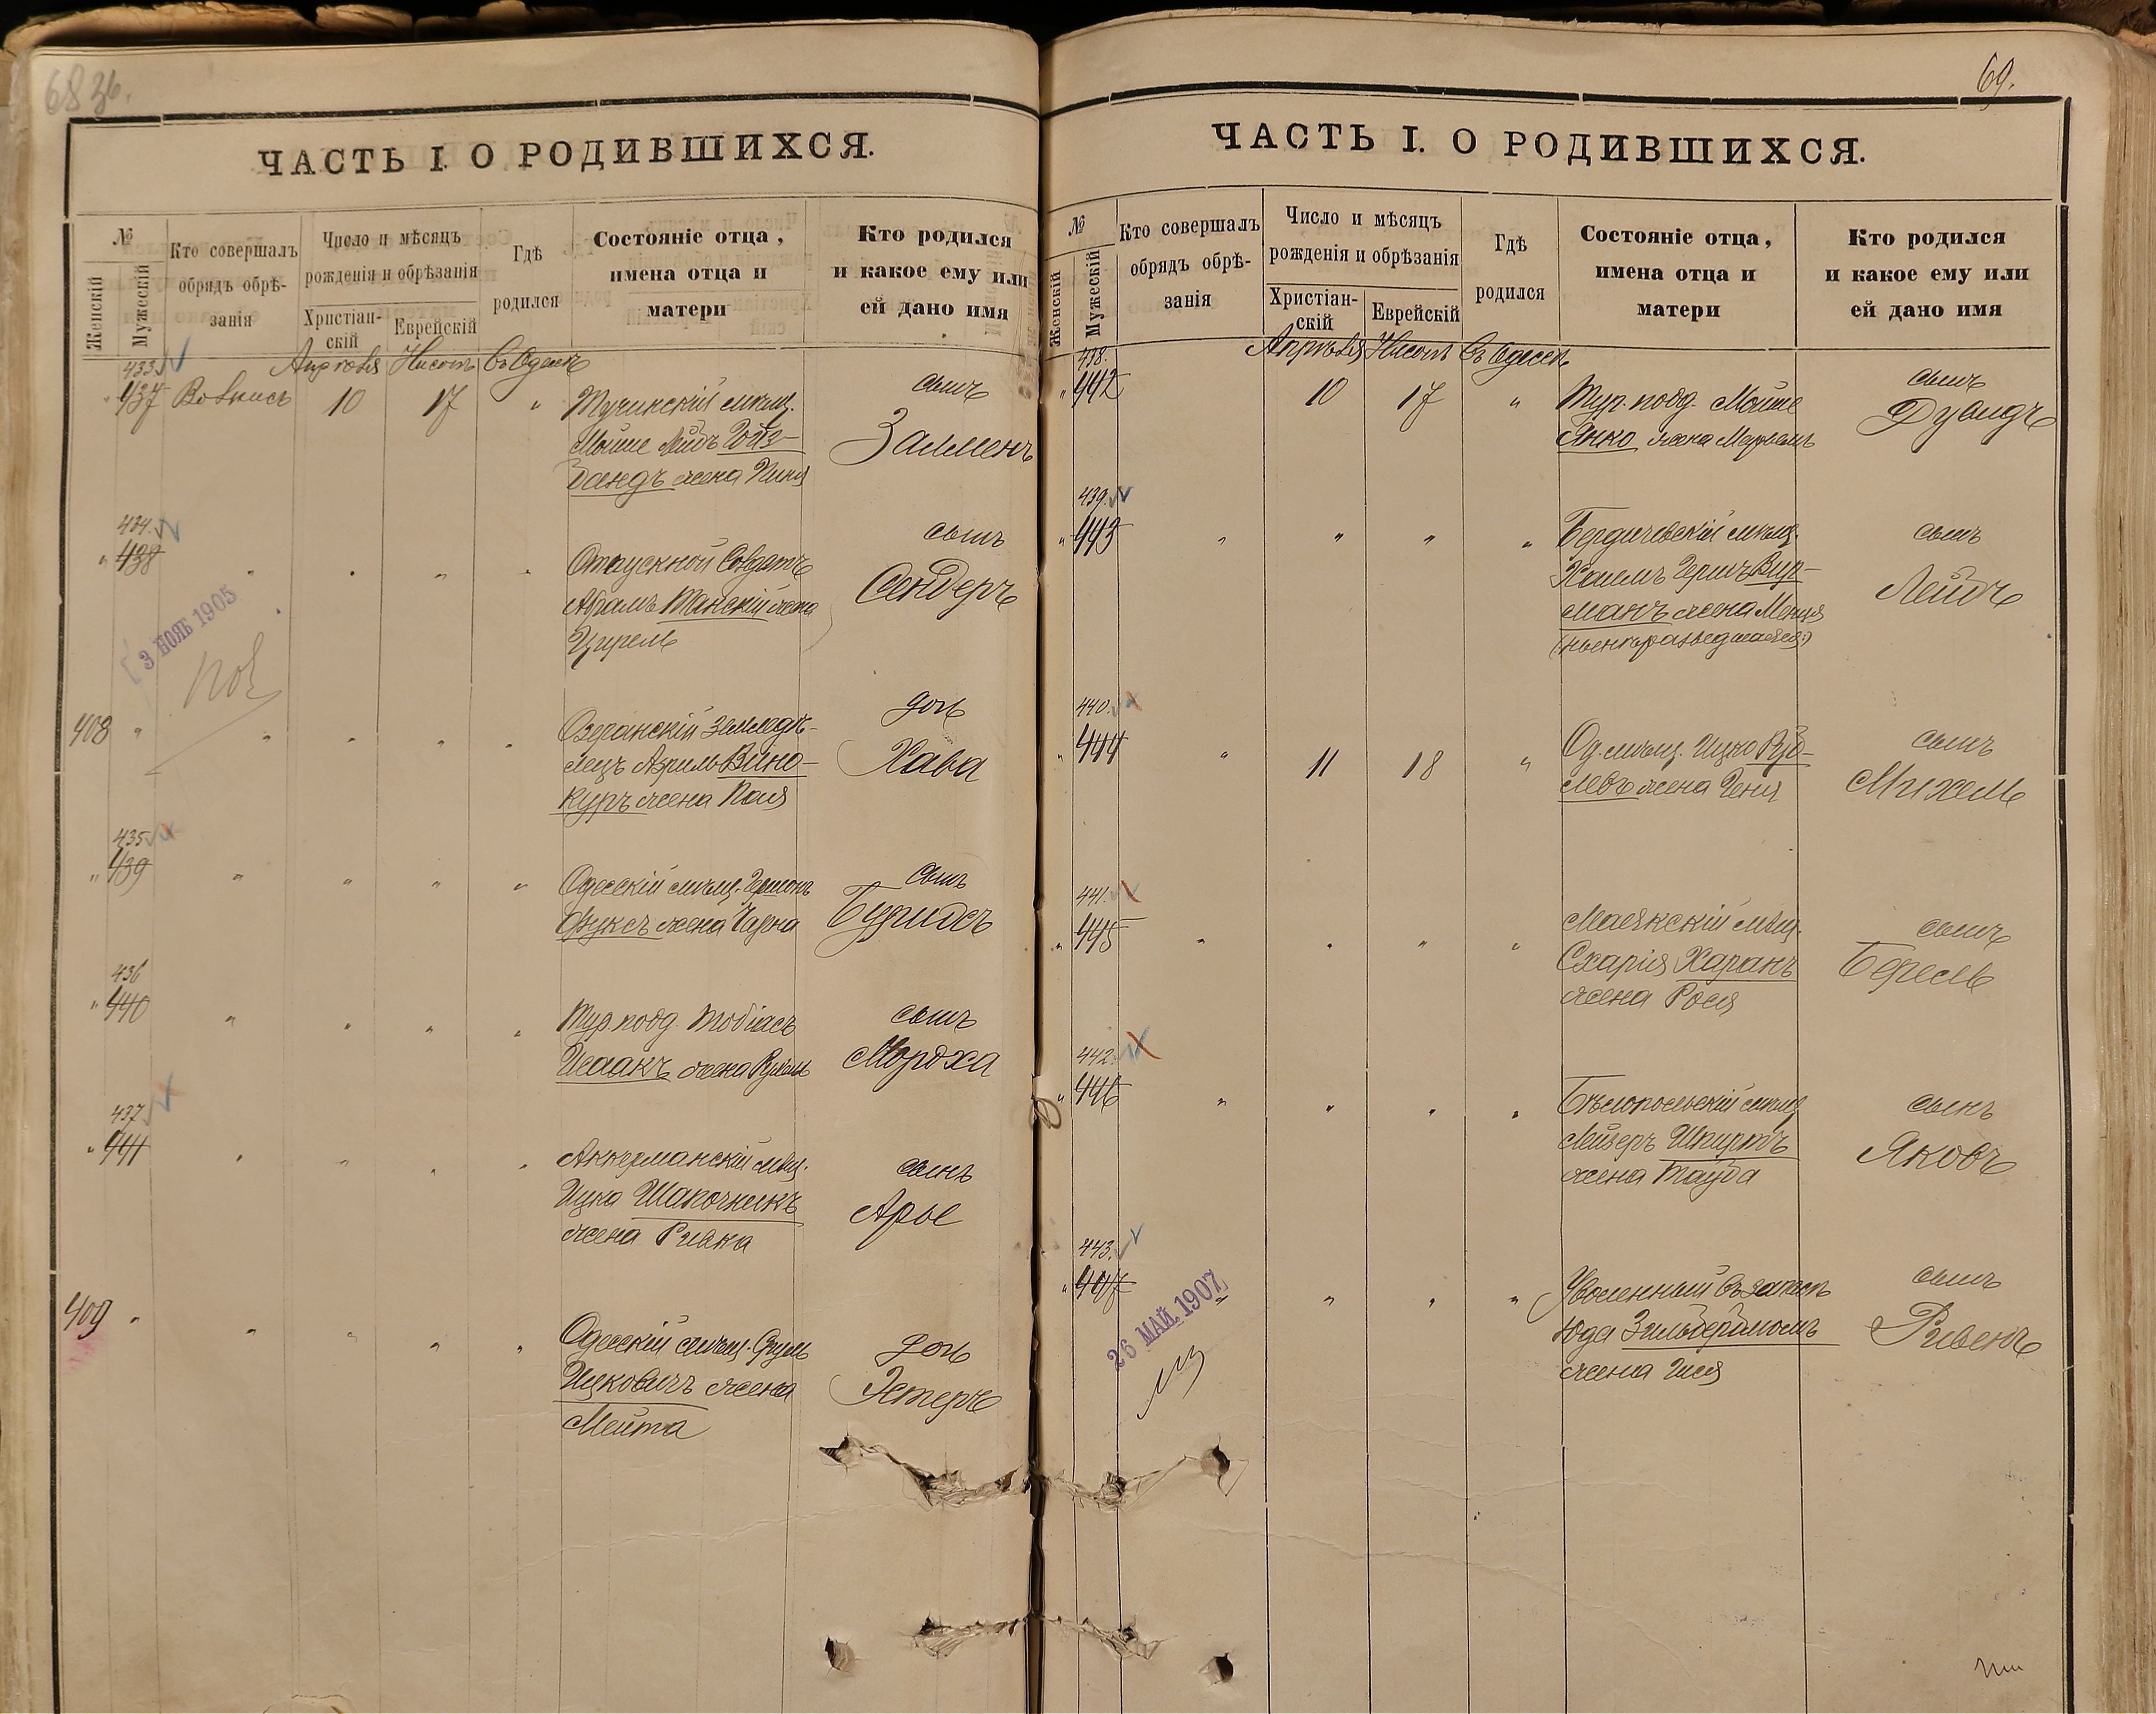 68 зб.
ЧАСТЬ I. О РОДИВШИХСЯ.
№
Женскій
Мужескій
Кто совершалъ
обрядъ обрѣ-
занія
Число и мѣсяцъ
рожденія и обрѣзанія
Христіан-
скій
Еврейскій
Гдѣ
родился
Состояніе отца,
имена отца и
матери
Кто родился
и какое ему или
ей дано имя
433.
Апрѣля Нисонъ Въ Одессѣ
" 437 10 17 "
мѣщ.
Мойше Лейбъ
жена
сынъ
Залменъ
434.
" 438 " " " "
Отпускной Солдатъ
Абрамъ Танскій жена
Цирель
сынъ
Сендеръ
3 НОЯБ 1905
408 " " " " "
Озеранскій Земледѣ-
лецъ Азриль Вино-
куръ жена Поля
дочь
Хава
435
" 439 " " " "
Одесскій мѣщ. Гершонъ
Фуксъ жена Чарна
сынъ
436
" 440 " " " "
Тур. подд. Тобіасъ
Исаакъ жена Рухель
сынъ
Мордха
437
" 441 " " " "
Аккерманскій мѣщ.
Ицко Шапочникъ
жена Ривка
сынъ
Арье
409 " " " " "
Одесскій мѣщ. Сруль
Ицковичъ жена
Мейта
дочь
Эстеръ
69.
ЧАСТЬ I. О РОДИВШИХСЯ.
№
Женскій
Мужескій
Кто совершалъ
обрядъ обрѣ-
занія
Число и мѣсяцъ
рожденія и обрѣзанія
Христіан-
скій
Еврейскій
Гдѣ
родился
Состояніе отца,
имена отца и
матери
Кто родился
и какое ему или
ей дано имя
438.
Апрѣля Нисонъ Въ Одессѣ
" 442 10 17 "
Тур. подд. Мойше
Янко жена Марьемъ
сынъ
Дувидъ
439.
" 443 " " " "
Бердичевскій мѣщ.
Хаимъ Гершъ Вур-
манъ жена
сынъ
Лейбъ
440.
" 444 " 11 18 "
Од. мѣщ. Ицко
жена Геня
сынъ
Михель
441.
" 445 " " " "
Маякскій мѣщ.
Схарія Харанъ
жена Рося
сынъ
Берель
442.
" 446 " " " "
Бѣлопольскій мѣщ.
Лейзеръ Шпиртъ
жена Тауба
сынъ
Яковъ
443.
" 447 " " " "
26 МАЙ 1907
Уволенный въ запасъ
Юда
жена
сынъ
Рувенъ